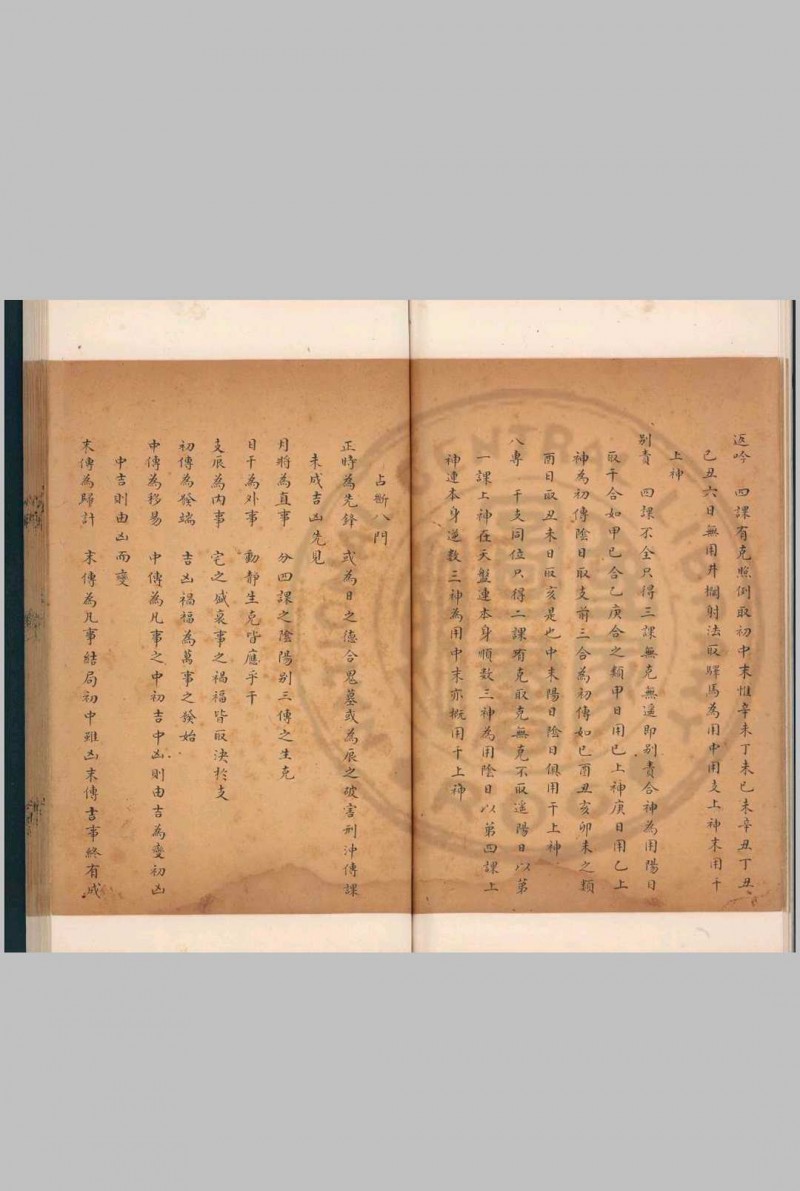 返吟　四課有克照例取初中末惟辛未丁未己未辛丑丁丑
己丑六日無用井欄射法取驛馬為用中用支上神末用干
上神
別責　四課不全只得三課無克無遥即別責合神為用陽日
取干合如甲己合乙庚合之類甲日用巳上神庚日用乙上
神為初傳陰日取支前三合為初傳如巳酉丑亥卯未之類
酉日取丑未日取亥是也中末陽日陰日俱用干上神
八專　干支同位只得二課有克取克無克不取遥陽日以第
一課上神在天盤連本身順数三神為用陰日以第四課上
神連本身逆数三神為用中末亦概用干上神
占斷八門
正時為先鋒　或為日之德合鬼墓或為辰之破害刑沖傳課
未成吉凶先見
月將為直事　分四課之陰陽別三傳之生克
日干為外事　動靜生克皆應乎干
支辰為內事　宅之盛衰事之禍福皆取決於支
初傳為發端　吉凶禍福為萬事之發始
中傳為移易　中傳為凡事之中初吉中凶則由吉為變初凶
中吉則由凶而變
末傳為歸計　末傳為凡事結局初中雖凶末傳吉事終有成